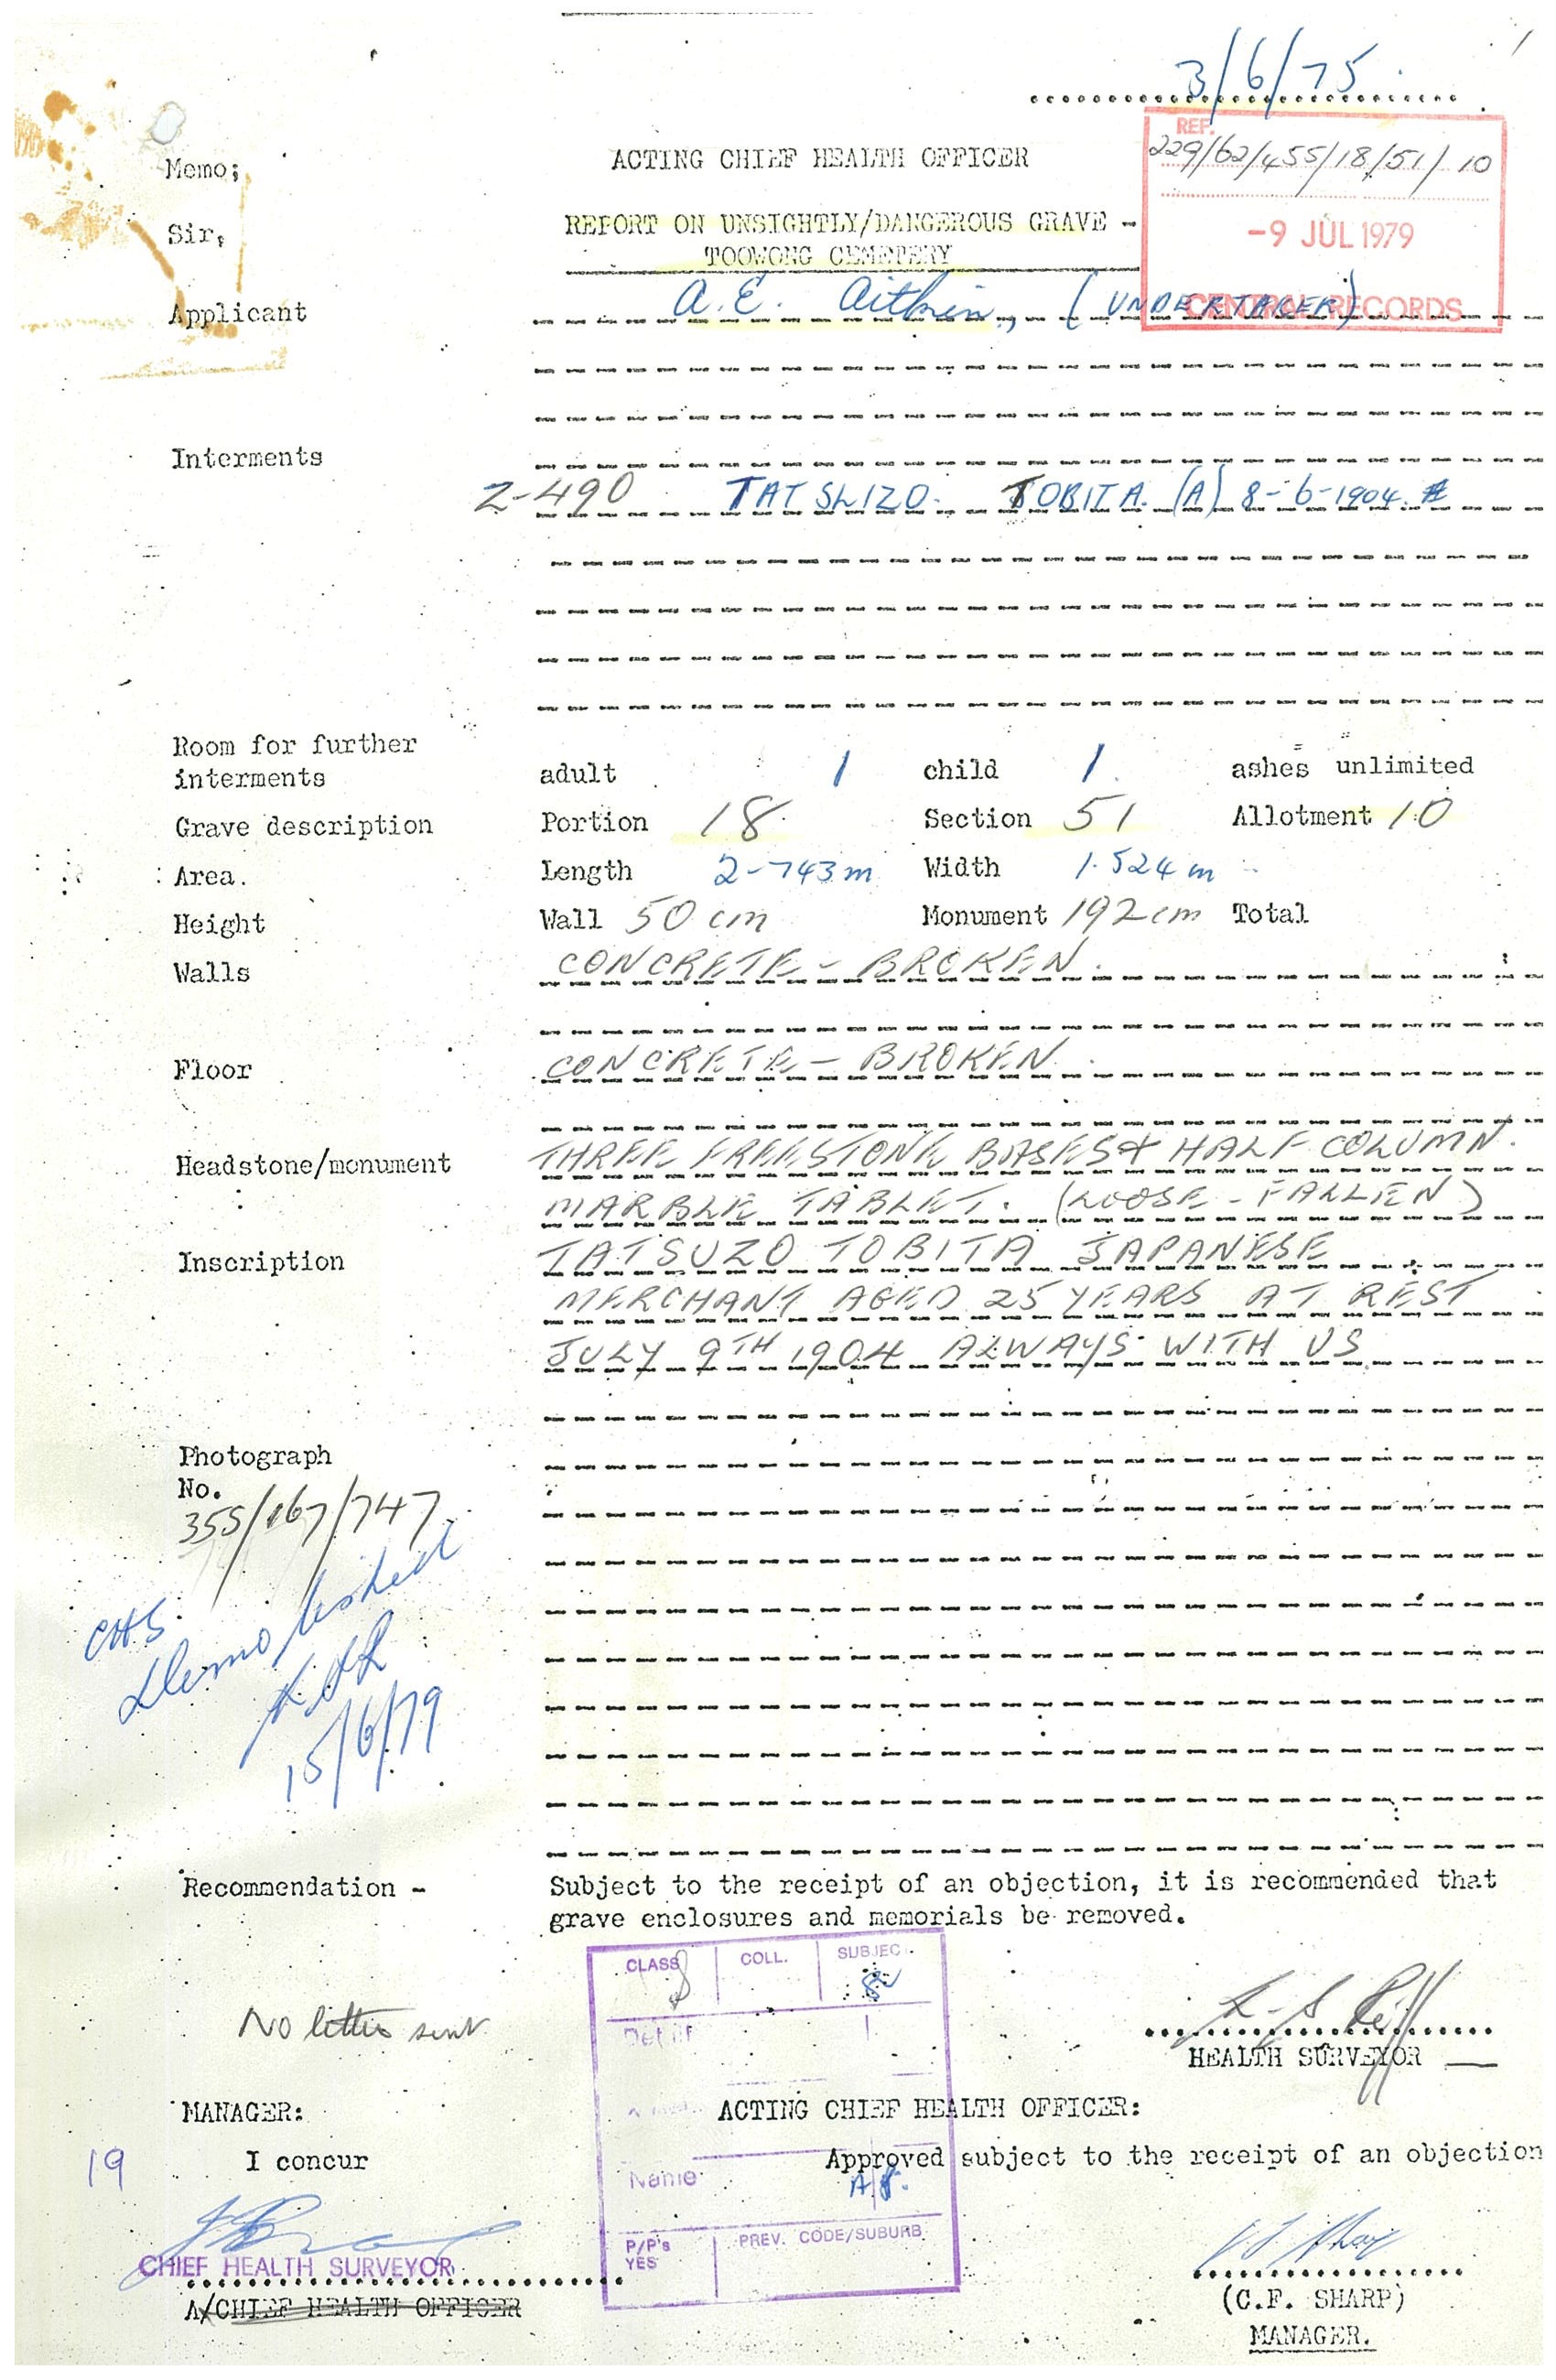 3/6/75
REF.
229/62/455/18/51/10
-9 JUL 1979
CENTRAL RECORDS
Memo;
ACTING CHIEF HEALTH OFFICER
Sir,
REPORT ON UNSIGHTLY/DANGEROUS GRAVE -
TOOWONG CEMETERY
Applicant A.E. Aitken, (UNDERTAKER)
Interments
Z-490 TATSUZO TOBITA (A) 8-6-1904
Room for further
interments adult 1 child 1. ashes unlimited
Grave description Portion 18 Section 51 Allotment 10
Area. Length 2-743m Width 1.524m
Height Wall 50cm Monument 192cm Total
Walls CONCRETE - BROKEN.
Floor CONCRETE - BROKEN
Headstone/monument THREE FREESTONE BASES & HALF COLUMN.
MARBLE TABLET. (LOOSE - FALLEN)
Inscription TATSUZO TOBITA JAPANESE
MERCHANT AGED 25 YEARS AT REST
JULY 9TH 1904 ALWAYS WITH US
Photograph
No.
355/167/747
CHS
Demolished
15/6/79
Recommendation - Subject to the receipt of an objection, it is recommended that
grave enclosures and memorials be removed.
CLASS COLL. SUBJEC
No letter sent
HEALTH SURVEYOR
MANAGER: ACTING CHIEF HEALTH OFFICER:
19 I concur Approved subject to the receipt of an objection
Name
P/P's PREV. CODE/SUBURB
YES
CHIEF HEALTH SURVEYOR
A/CHIEF HEALTH OFFICER
(C.F. SHARP)
MANAGER.